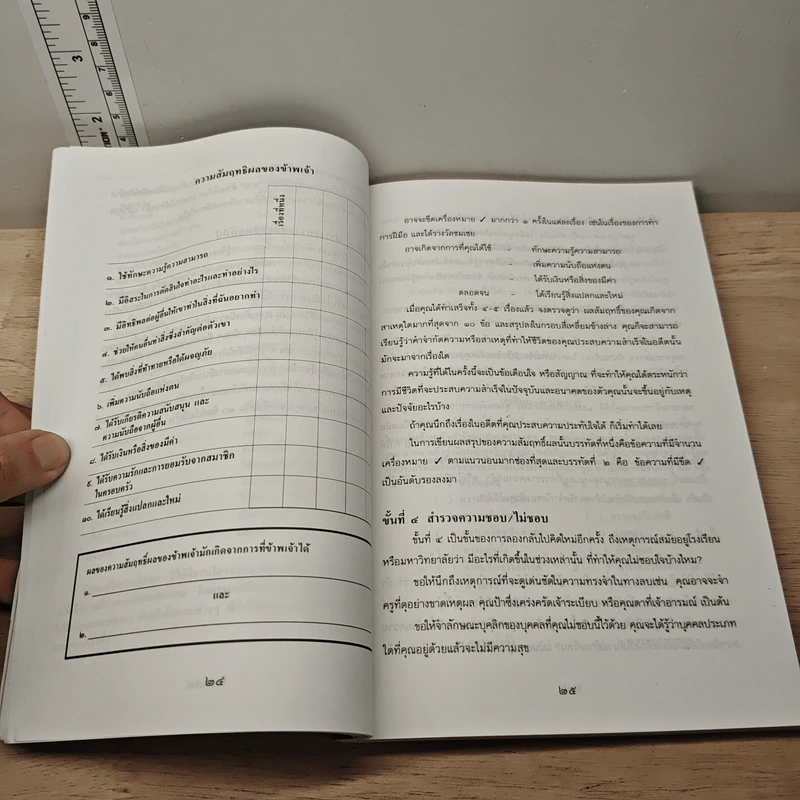 ความสัมฤทธิผลของข้าพเจ้า
เรื่องที่หนึ่ง
๑. ใช้ทักษะความรู้ความสามารถ
๒. มีอิสระในการตัดสินใจทำอะไรและทำอย่างไร
๓. มีอิทธิพลต่อผู้อื่นให้เขาทำในสิ่งที่ฉันอยากทำ
๔. ช่วยให้คนอื่นทำสิ่งซึ่งสำคัญต่อตัวเขา
๕. ได้พบสิ่งที่ท้าทายหรือได้ผจญภัย
๖. เพิ่มความนับถือแห่งตน
๗. ได้รับเกียรติความสนับสนุน และ
ความนับถือจากผู้อื่น
๘. ได้รับเงินหรือสิ่งของมีค่า
๙. ได้รับความรักและการยอมรับจากสมาชิก
ในครอบครัว
๑๐. ได้เรียนรู้สิ่งแปลกและใหม่
ผลของความสัมฤทธิ์ผลของข้าพเจ้ามักเกิดจากการที่ข้าพเจ้าได้
๑.
และ
๒.
๒๔
อาจจะขีดเครื่องหมาย ✓ มากกว่า ๑ ครั้งในแต่ละเรื่อง เช่นในเรื่องของการทำ
การฝีมือ และได้รางวัลชมเชย
อาจเกิดจากการที่คุณได้ใช้ – ทักษะความรู้ความสามารถ
– เพิ่มความนับถือแห่งตน
– ได้รับเงินหรือสิ่งของมีค่า
ตลอดจน – ได้เรียนรู้สิ่งแปลกและใหม่
เมื่อคุณได้ทำเสร็จทั้ง ๔-๕ เรื่องแล้ว จงตรวจดูว่า ผลสัมฤทธิ์ของคุณเกิดจาก
สาเหตุใดมากที่สุดจาก ๑๐ ข้อ และสรุปลงในกรอบสี่เหลี่ยมข้างล่าง คุณก็จะสามารถ
เรียนรู้ว่าคำจำกัดความหรือสาเหตุที่ทำให้ชีวิตของคุณประสบความสำเร็จในอดีตนั้น
มักจะมาจากเรื่องใด
ความรู้ที่ได้ในครั้งนี้จะเป็นข้อเตือนใจ หรือสัญญาณ ที่จะทำให้คุณได้ตระหนักว่า
การมีชีวิตที่จะประสบความสำเร็จในปัจจุบันและอนาคตของตัวคุณนั้นจะขึ้นอยู่กับเหตุ
และปัจจัยอะไรบ้าง
ถ้าคุณนึกถึงเรื่องในอดีตที่คุณประสบความประทับใจได้ ก็เริ่มทำได้เลย
ในการเขียนผลสรุปของความสัมฤทธิ์ผลนั้นบรรทัดที่หนึ่งคือข้อความที่มีจำนวน
เครื่องหมาย ✓ ตามแนวนอนมากช่องที่สุดและบรรทัดที่ ๒ คือ ข้อความที่มีขีด ✓
เป็นอันดับรองลงมา
ขั้นที่ ๔ สำรวจความชอบ/ไม่ชอบ
ขั้นที่ ๔ เป็นขั้นของการลองกลับไปคิดใหม่อีกครั้ง ถึงเหตุการณ์สมัยอยู่โรงเรียน
หรือมหาวิทยาลัยว่า มีอะไรที่เกิดขึ้นในช่วงเหล่านั้น ที่ทำให้คุณไม่ชอบใจบ้างไหม?
ขอให้นึกถึงเหตุการณ์ที่จะดูเด่นชัดในความทรงจำในทางลบเช่น คุณอาจจะจำ
ครูที่ดุอย่างขาดเหตุผล คุณป้าซึ่งเคร่งครัดเจ้าระเบียบ หรือคุณตาที่เจ้าอารมณ์ เป็นต้น
ขอให้จำลักษณะบุคลิกของบุคคลที่คุณไม่ชอบนี้ไว้ด้วย คุณจะได้รู้ว่าบุคคลประเภท
ใดที่คุณอยู่ด้วยแล้วจะไม่มีความสุข
๒๕